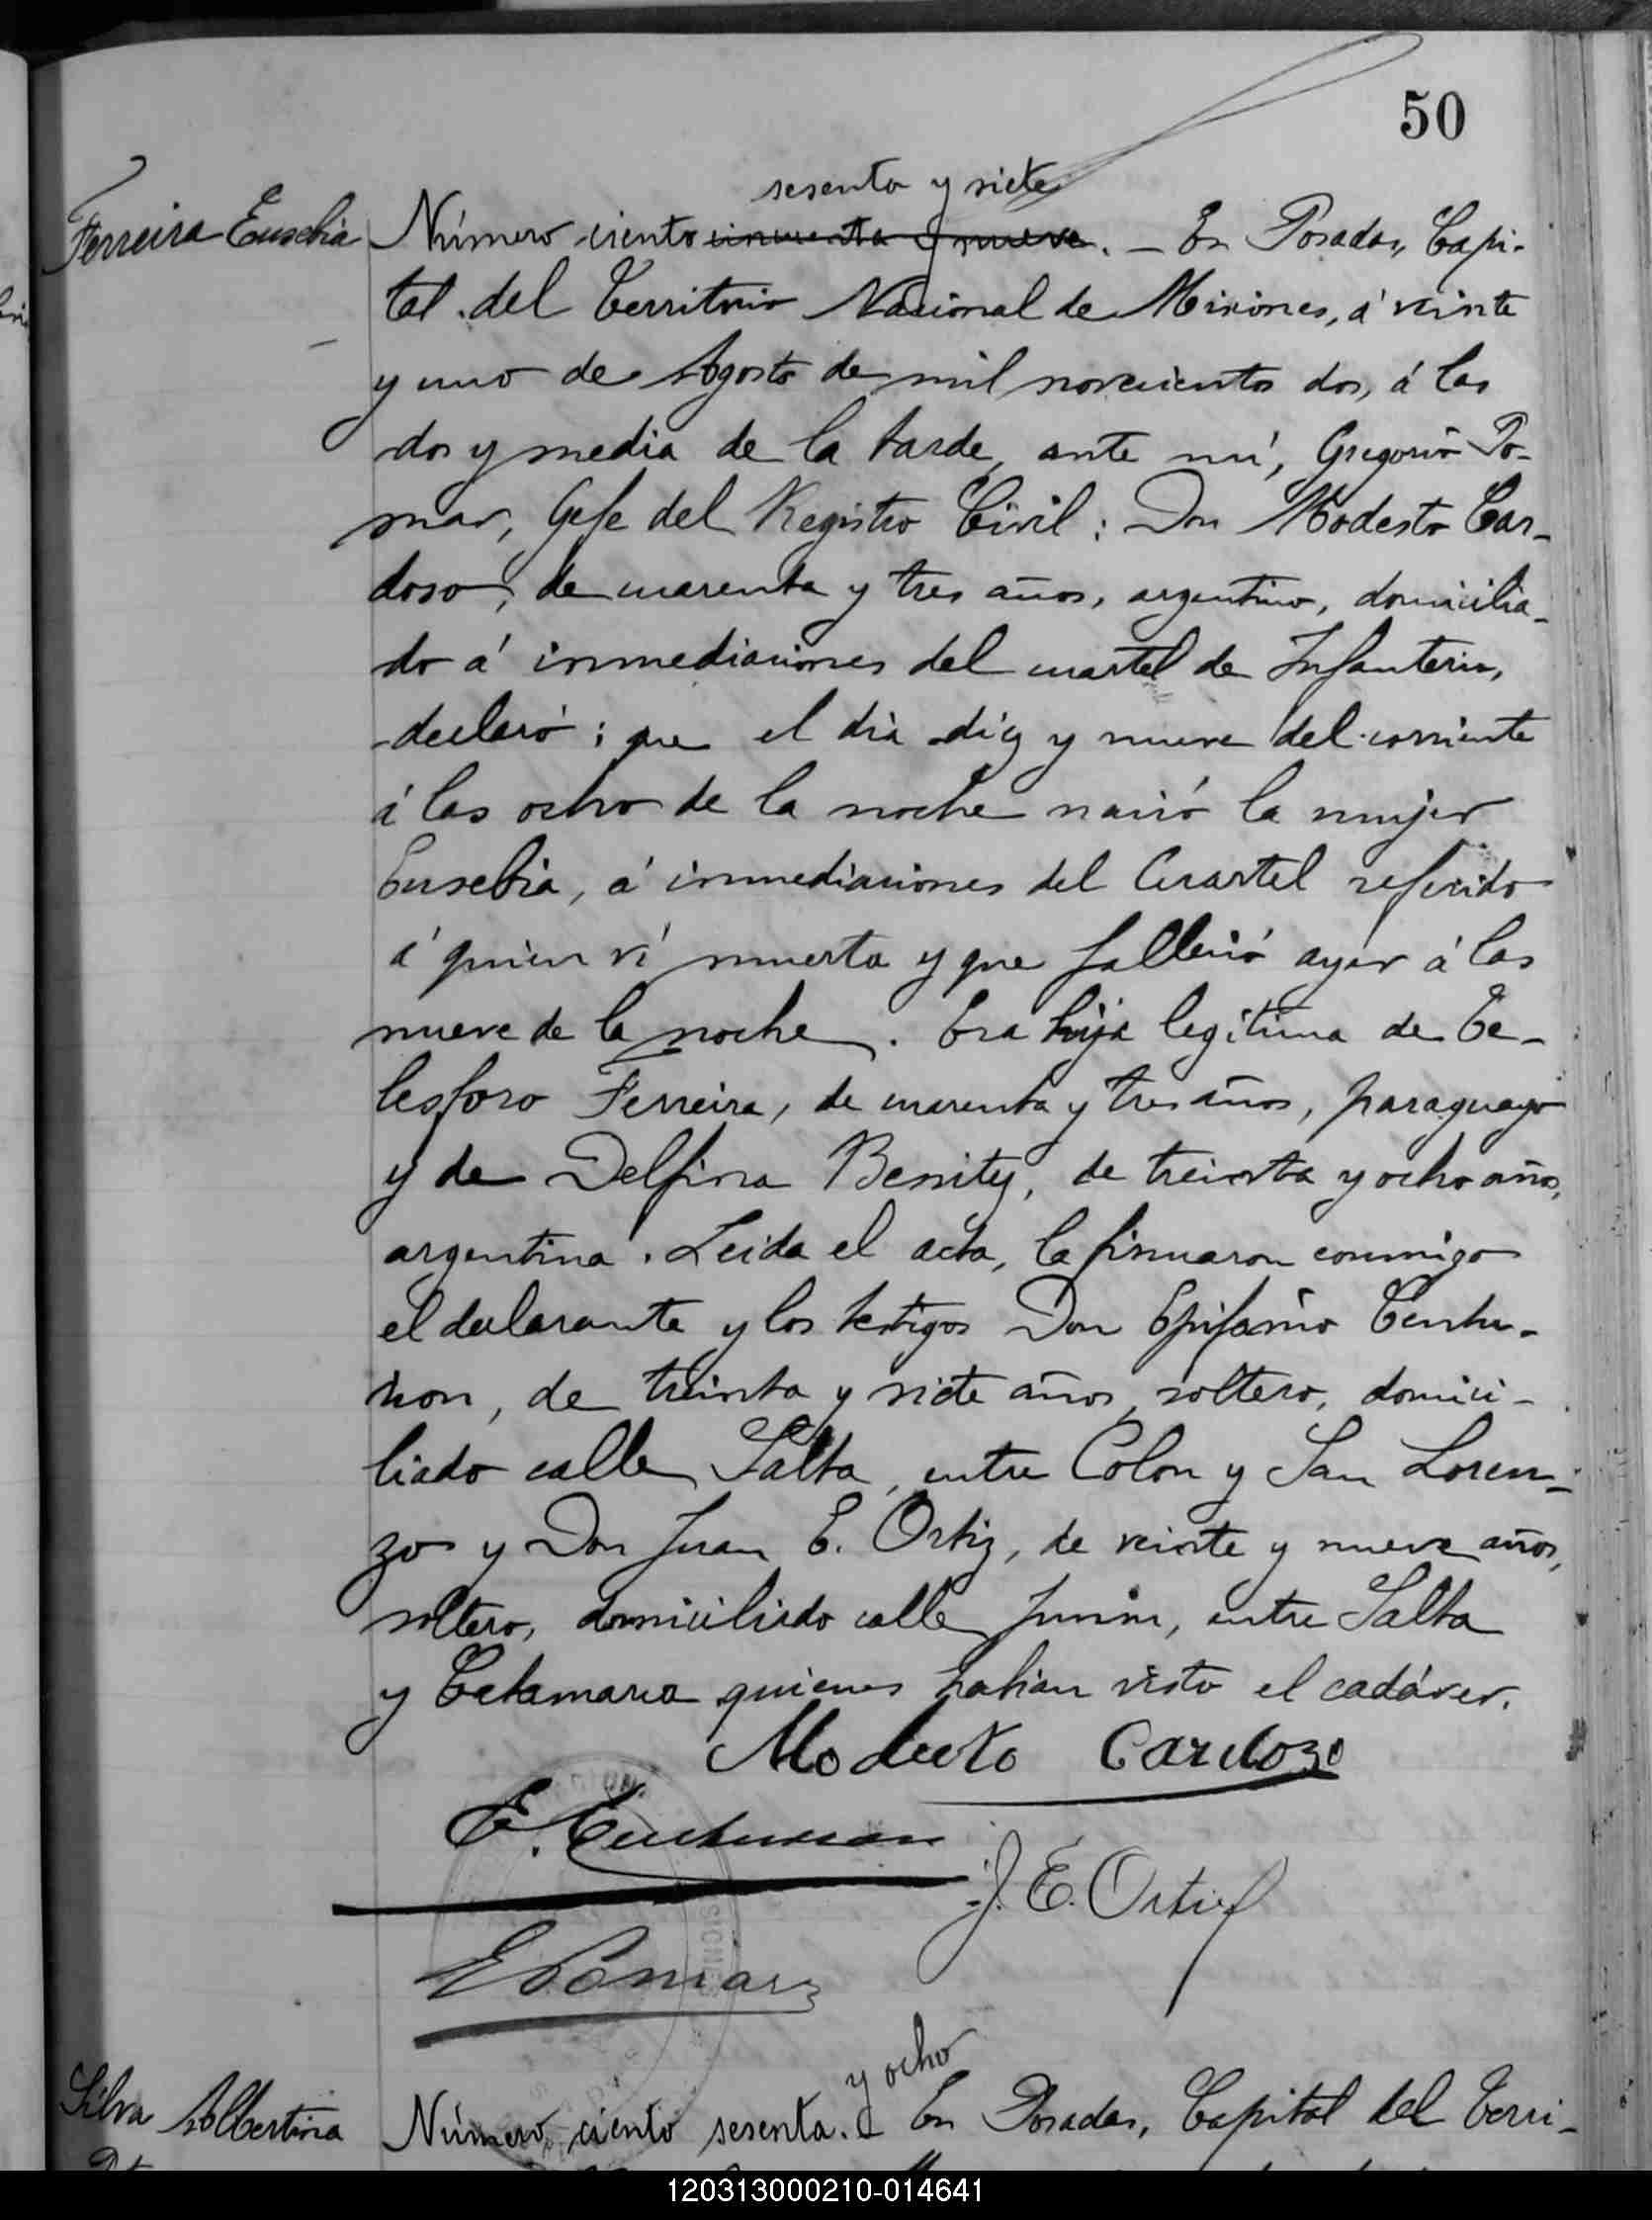 50
sesenta y siete
Ferreira Eusebia
Número ciento cincuenta y nueve. – En Posadas, Capi-
tal del Territorio Nacional de Misiones, á veinte
y uno de Agosto de mil novecientos dos, á las
dos y media de la tarde, ante mí, Gregorio Po-
mar, Gefe del Registro Civil: Don Modesto Car-
doso, de cuarenta y tres años, argentino, domicilia-
do á inmediaciones del cuartel de Infanteria,
declaró: que el dia diez y nueve del corriente
á las ocho de la noche nació la mujer
Eusebia, á inmediaciones del Cuartel referido
á quien ví muerta y que falleció ayer á las
nueve de la noche. Era hija legítima de Te-
lesforo Ferreira, de cuarenta y tres años, paraguayo
y de Delfina Benitez, de treinta y ocho años,
argentina. Leida el acta, la firmaron conmigo
el declarante y los testigos Don Epifanio
de treinta y siete años, soltero, domici-
liado calle Salta, entre Colon y San Loren-
zo y Don Juan E. Ortiz, de veinte y nueve años,
soltero, domiciliado calle Junin, entre Salta
y Catamarca quienes habian visto el cadáver.
Modesto Cardozo
E.
J. E. Ortiz
Pomar
y ocho
Silva Albertina
Número ciento sesenta. En Posadas, Capital del Terri-
120313000210-014641